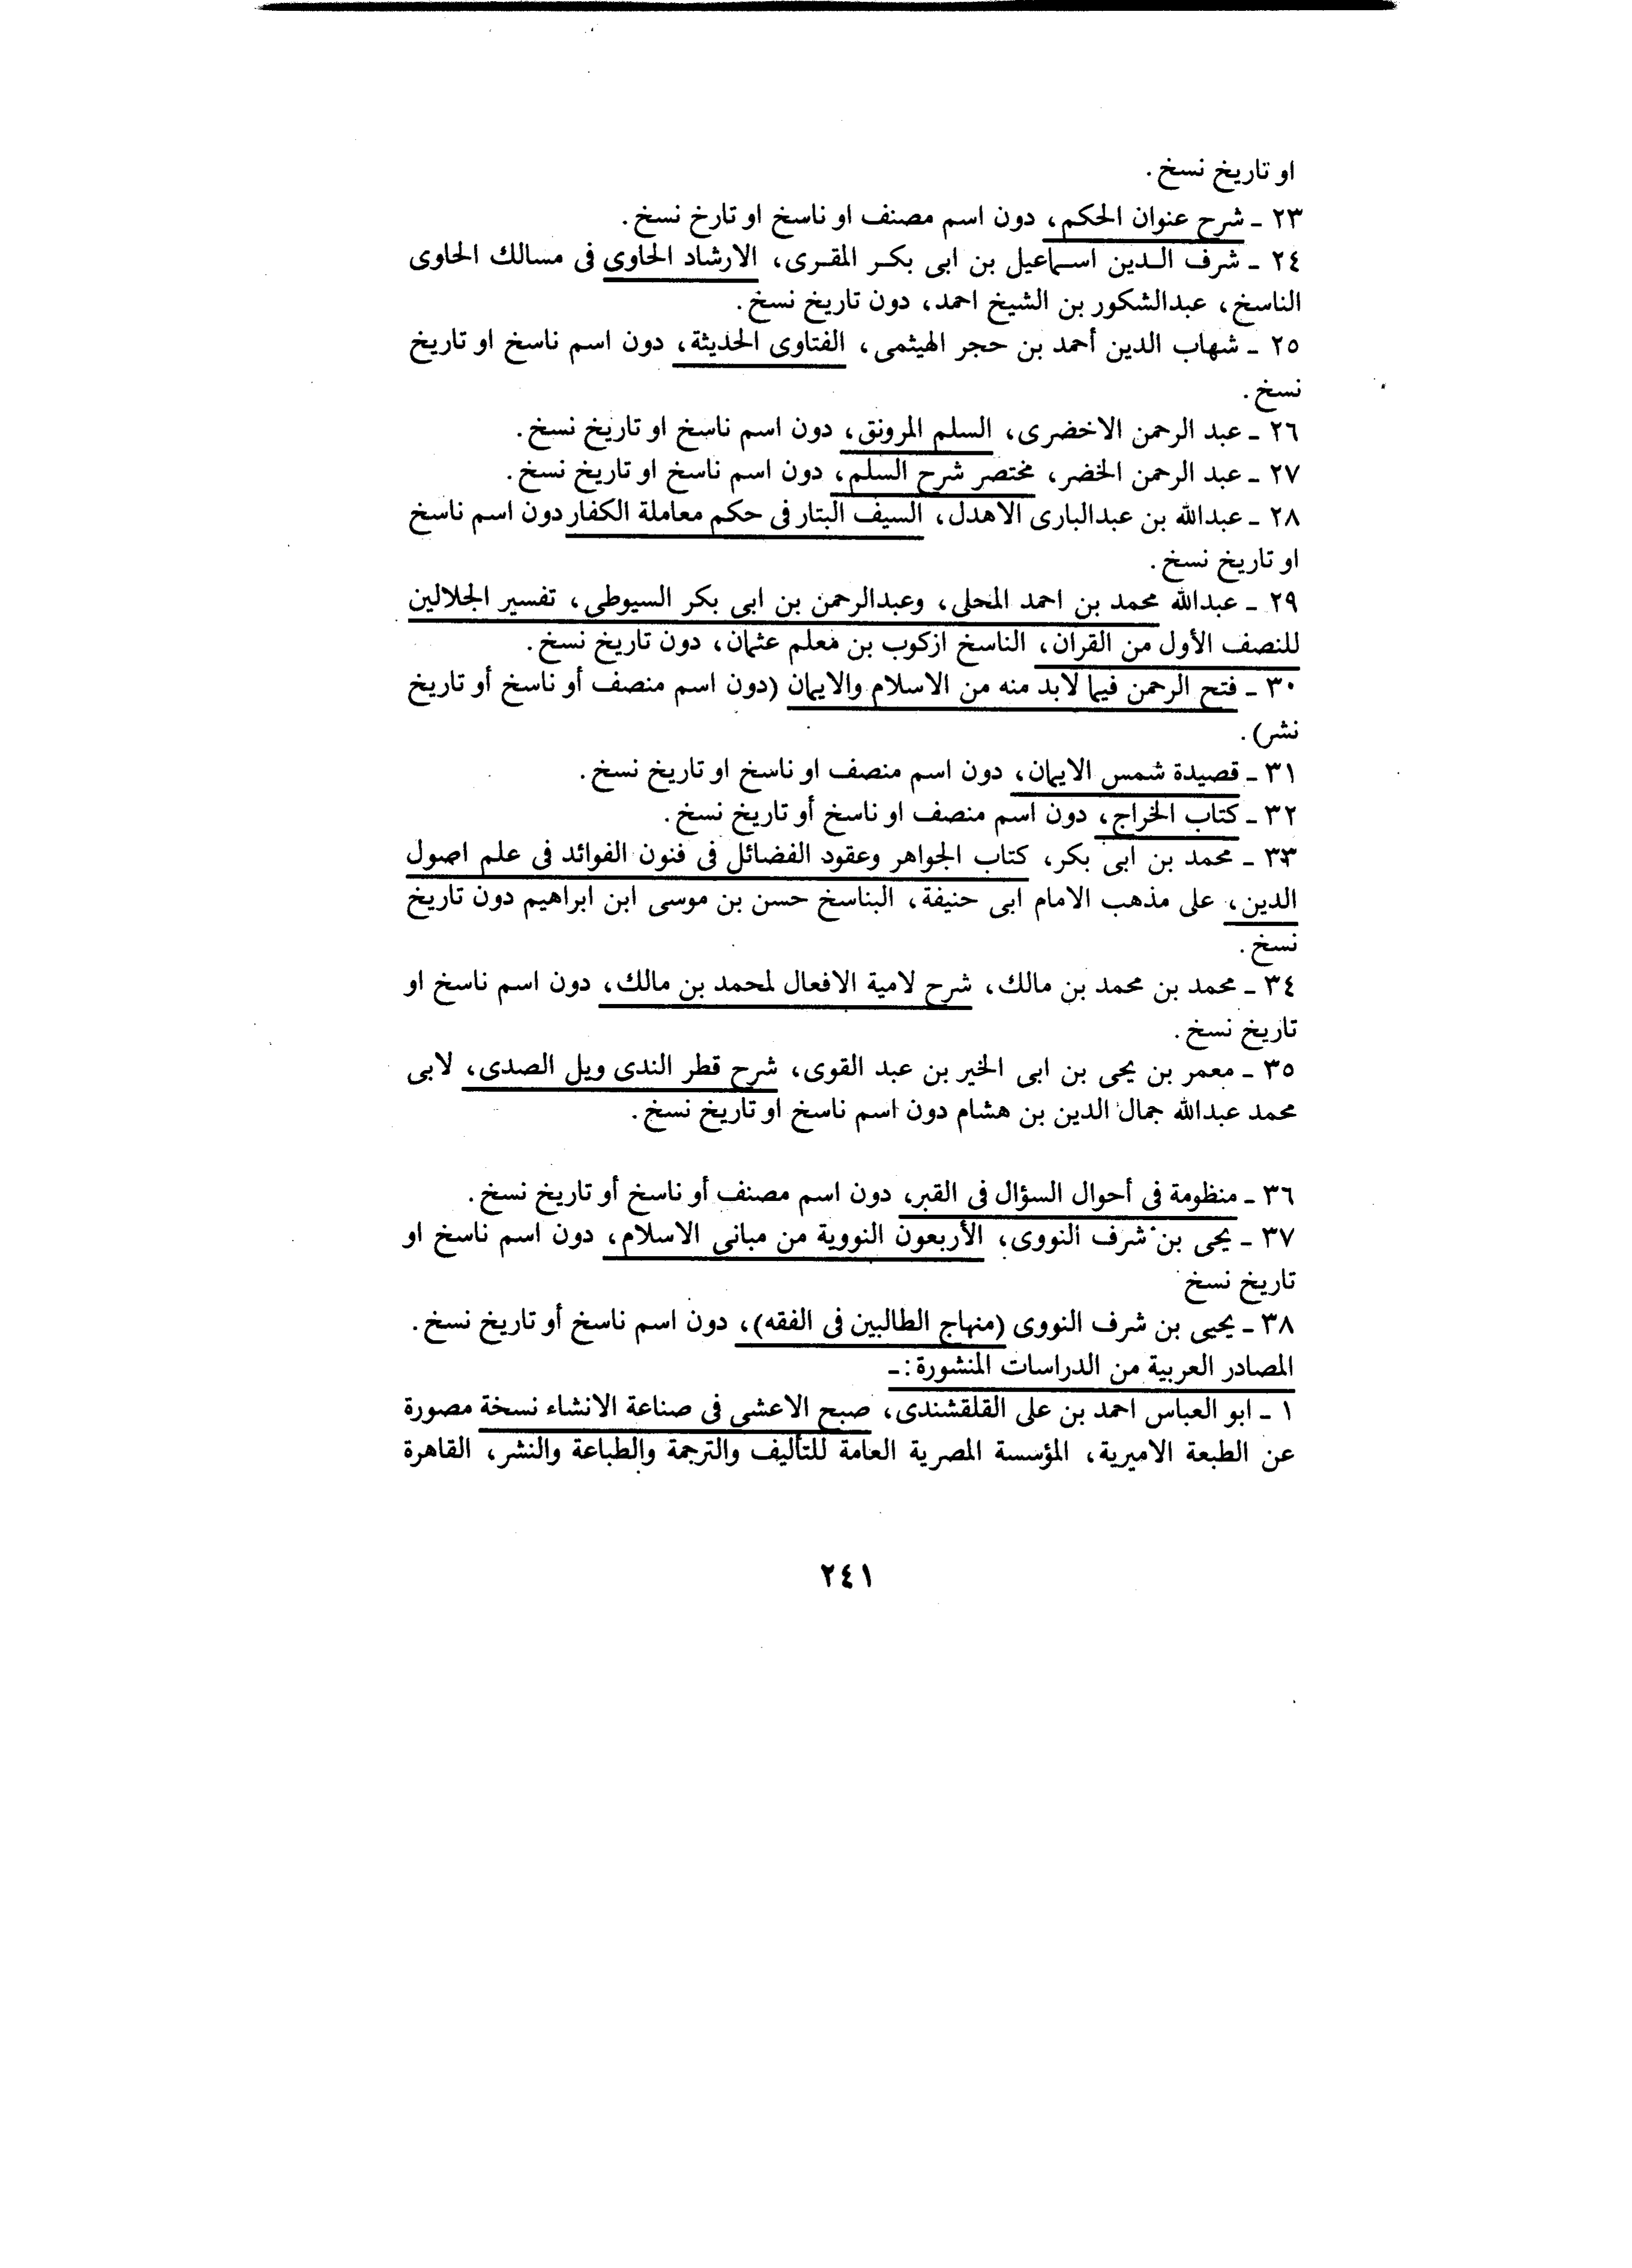 او تاريخ نسخ.
٢٣ ـ شرح عنوان الحكم، دون اسم مصنف او ناسخ او تارخ نسخ.
٢٤ ـ شرف الدين اسماعيل بن ابى بكر المقرى، الارشاد الحاوى فى مسالك الحاوى
الناسخ، عبدالشكور بن الشيخ احمد، دون تاريخ نسخ.
٢٥ ـ شهاب الدين أحمد بن حجر الهيثمى، الفتاوى الحذيثة، دون اسم ناسخ او تاريخ
نسخ.
٢٦ ـ عبد الرحمن الاخضرى، السلم المرونق، دون اسم ناسخ او تاريخ نسخ.
٢٧ ـ عبد الرحمن الخضر، مختصر شرح السلم، دون اسم ناسخ او تاريخ نسخ.
٢٨ ـ عبدالله بن عبدالبارى الاهدل، السيف البتار فى حكم معاملة الكفار دون اسم ناسخ
او تاريخ نسخ.
٢٩ ـ عبدالله محمد بن احمد المحلى، وعبدالرحمن بن ابى بكر السيوطى، تفسير الجلالين
للنصف الأول من القران، الناسخ ازكوب بن معلم عثمان، دون تاريخ نسخ.
٣٠ ـ فتح الرحمن فيما لابد منه من الاسلام والايمان (دون اسم منصف أو ناسخ أو تاريخ
نشر).
٣١ ـ قصيدة شمس الايمان، دون اسم منصف او ناسخ او تاريخ نسخ.
٣٢ ـ كتاب الخراج، دون اسم منصف او ناسخ أو تاريخ نسخ.
٣٣ ـ محمد بن ابى بكر، كتاب الجواهر وعقود الفضائل فى فنون الفوائد فى علم اصول
الدين، على مذهب الامام ابى حنيفة، البناسخ حسن بن موسى ابن ابراهيم دون تاريخ
نسخ.
٣٤ ـ محمد بن محمد بن مالك، شرح لامية الافعال لمحمد بن مالك، دون اسم ناسخ او
تاريخ نسخ.
٣٥ ـ معمر بن يحى بن ابى الخير بن عبد القوى، شرح قطر الندى ويل الصدى، لابى
محمد عبدالله جمال الدين بن هشام دون اسم ناسخ او تاريخ نسخ.
٣٦ ـ منظومة فى أحوال السؤال فى القبر، دون اسم مصنف أو ناسخ أو تاريخ نسخ.
٣٧ ـ يحى بن شرف النووى، الأربعون النووية من مبانى الاسلام، دون اسم ناسخ او
تاريخ نسخ
٣٨ ـ يحيى بن شرف النووى (منهاج الطالبين فى الفقه)، دون اسم ناسخ أو تاريخ نسخ.
المصادر العربية من الدراسات المنشورة:ـ
١ ـ ابو العباس احمد بن على القلقشندى، صبح الاعشى فى صناعة الانشاء نسخة مصورة
عن الطبعة الاميرية، المؤسسة المصرية العامة للتأليف والترجمة والطباعة والنشر، القاهرة
٢٤١